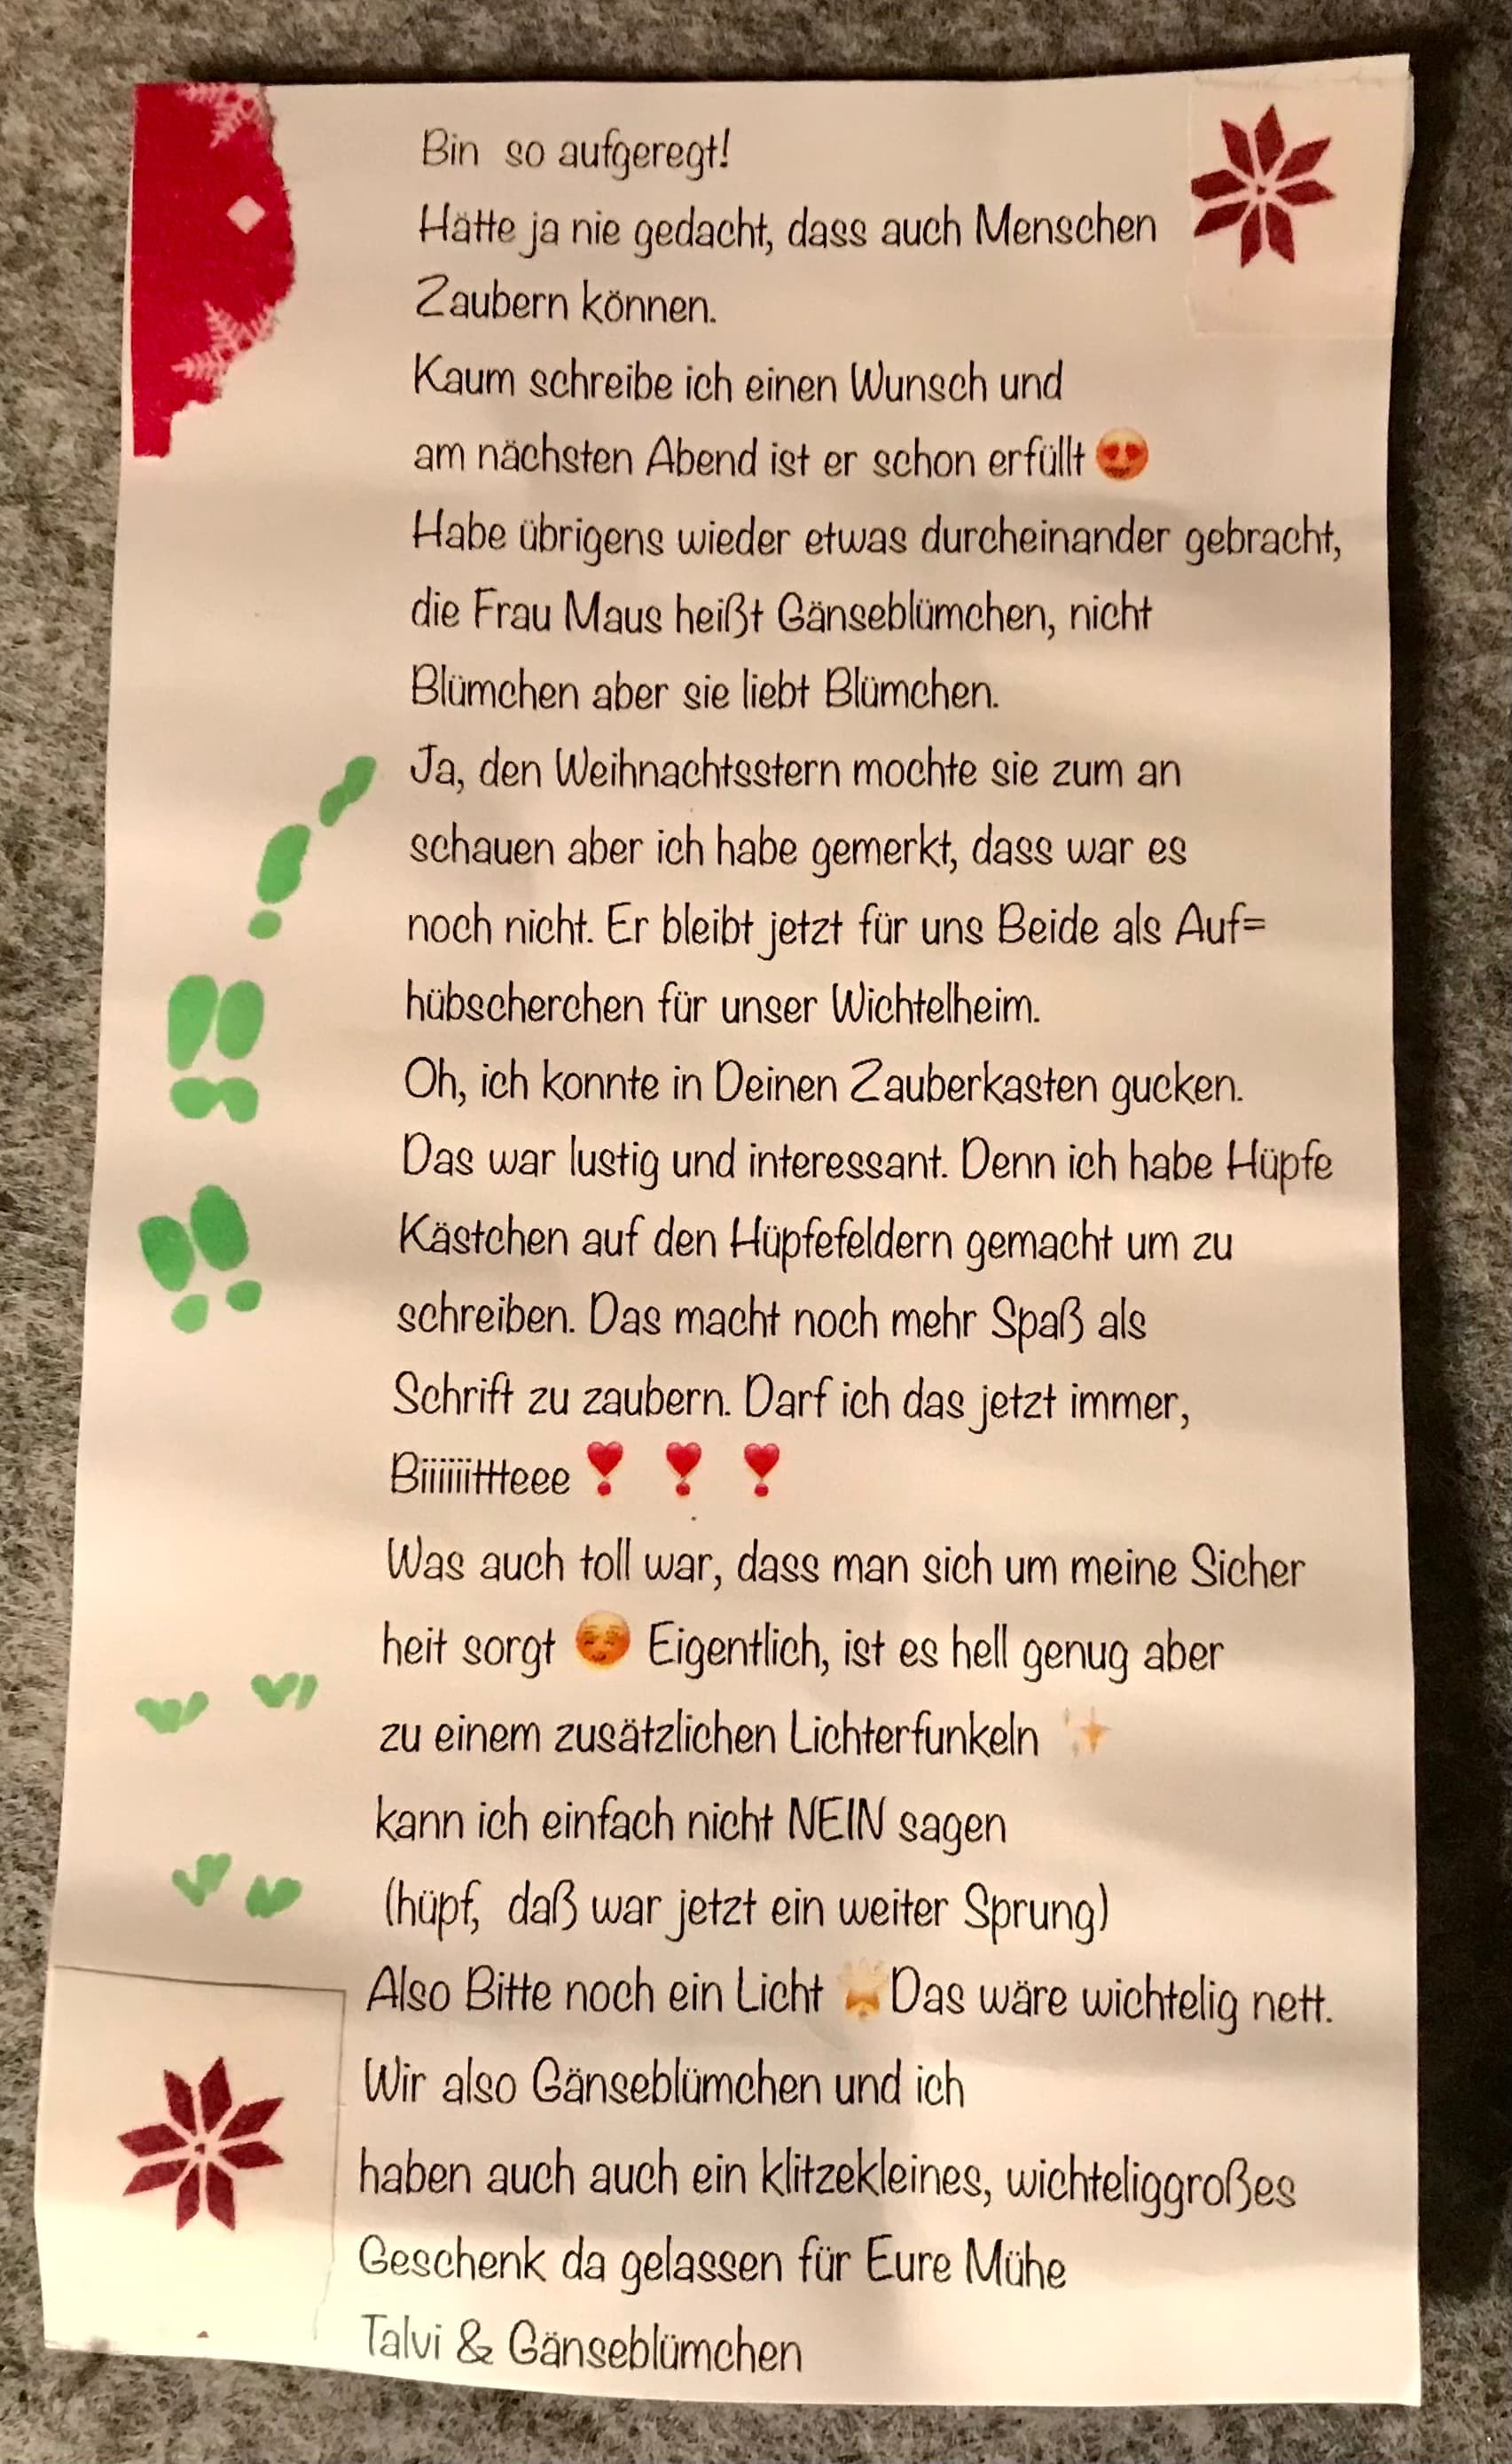 Bin so aufgeregt!
Hätte ja nie gedacht, dass auch Menschen
Zaubern können.
Kaum schreibe ich einen Wunsch und
am nächsten Abend ist er schon erfüllt 😍
Habe übrigens wieder etwas durcheinander gebracht,
die Frau Maus heißt Gänseblümchen, nicht
Blümchen aber sie liebt Blümchen.
Ja, den Weihnachtsstern mochte sie zum an
schauen aber ich habe gemerkt, dass war es
noch nicht. Er bleibt jetzt für uns Beide als Auf=
hübscherchen für unser Wichtelheim.
Oh, ich konnte in Deinen Zauberkasten gucken.
Das war lustig und interessant. Denn ich habe Hüpfe
Kästchen auf den Hüpfefeldern gemacht um zu
schreiben. Das macht noch mehr Spaß als
Schrift zu zaubern. Darf ich das jetzt immer,
Biiiiiittteee ❣️ ❣️ ❣️
Was auch toll war, dass man sich um meine Sicher
heit sorgt ☺️ Eigentlich, ist es hell genug aber
zu einem zusätzlichen Lichterfunkeln ✨
kann ich einfach nicht NEIN sagen
(hüpf, daß war jetzt ein weiter Sprung)
Also Bitte noch ein Licht Das wäre wichtelig nett.
Wir also Gänseblümchen und ich
haben auch auch ein klitzekleines, wichteliggroßes
Geschenk da gelassen für Eure Mühe
Talvi & Gänseblümchen